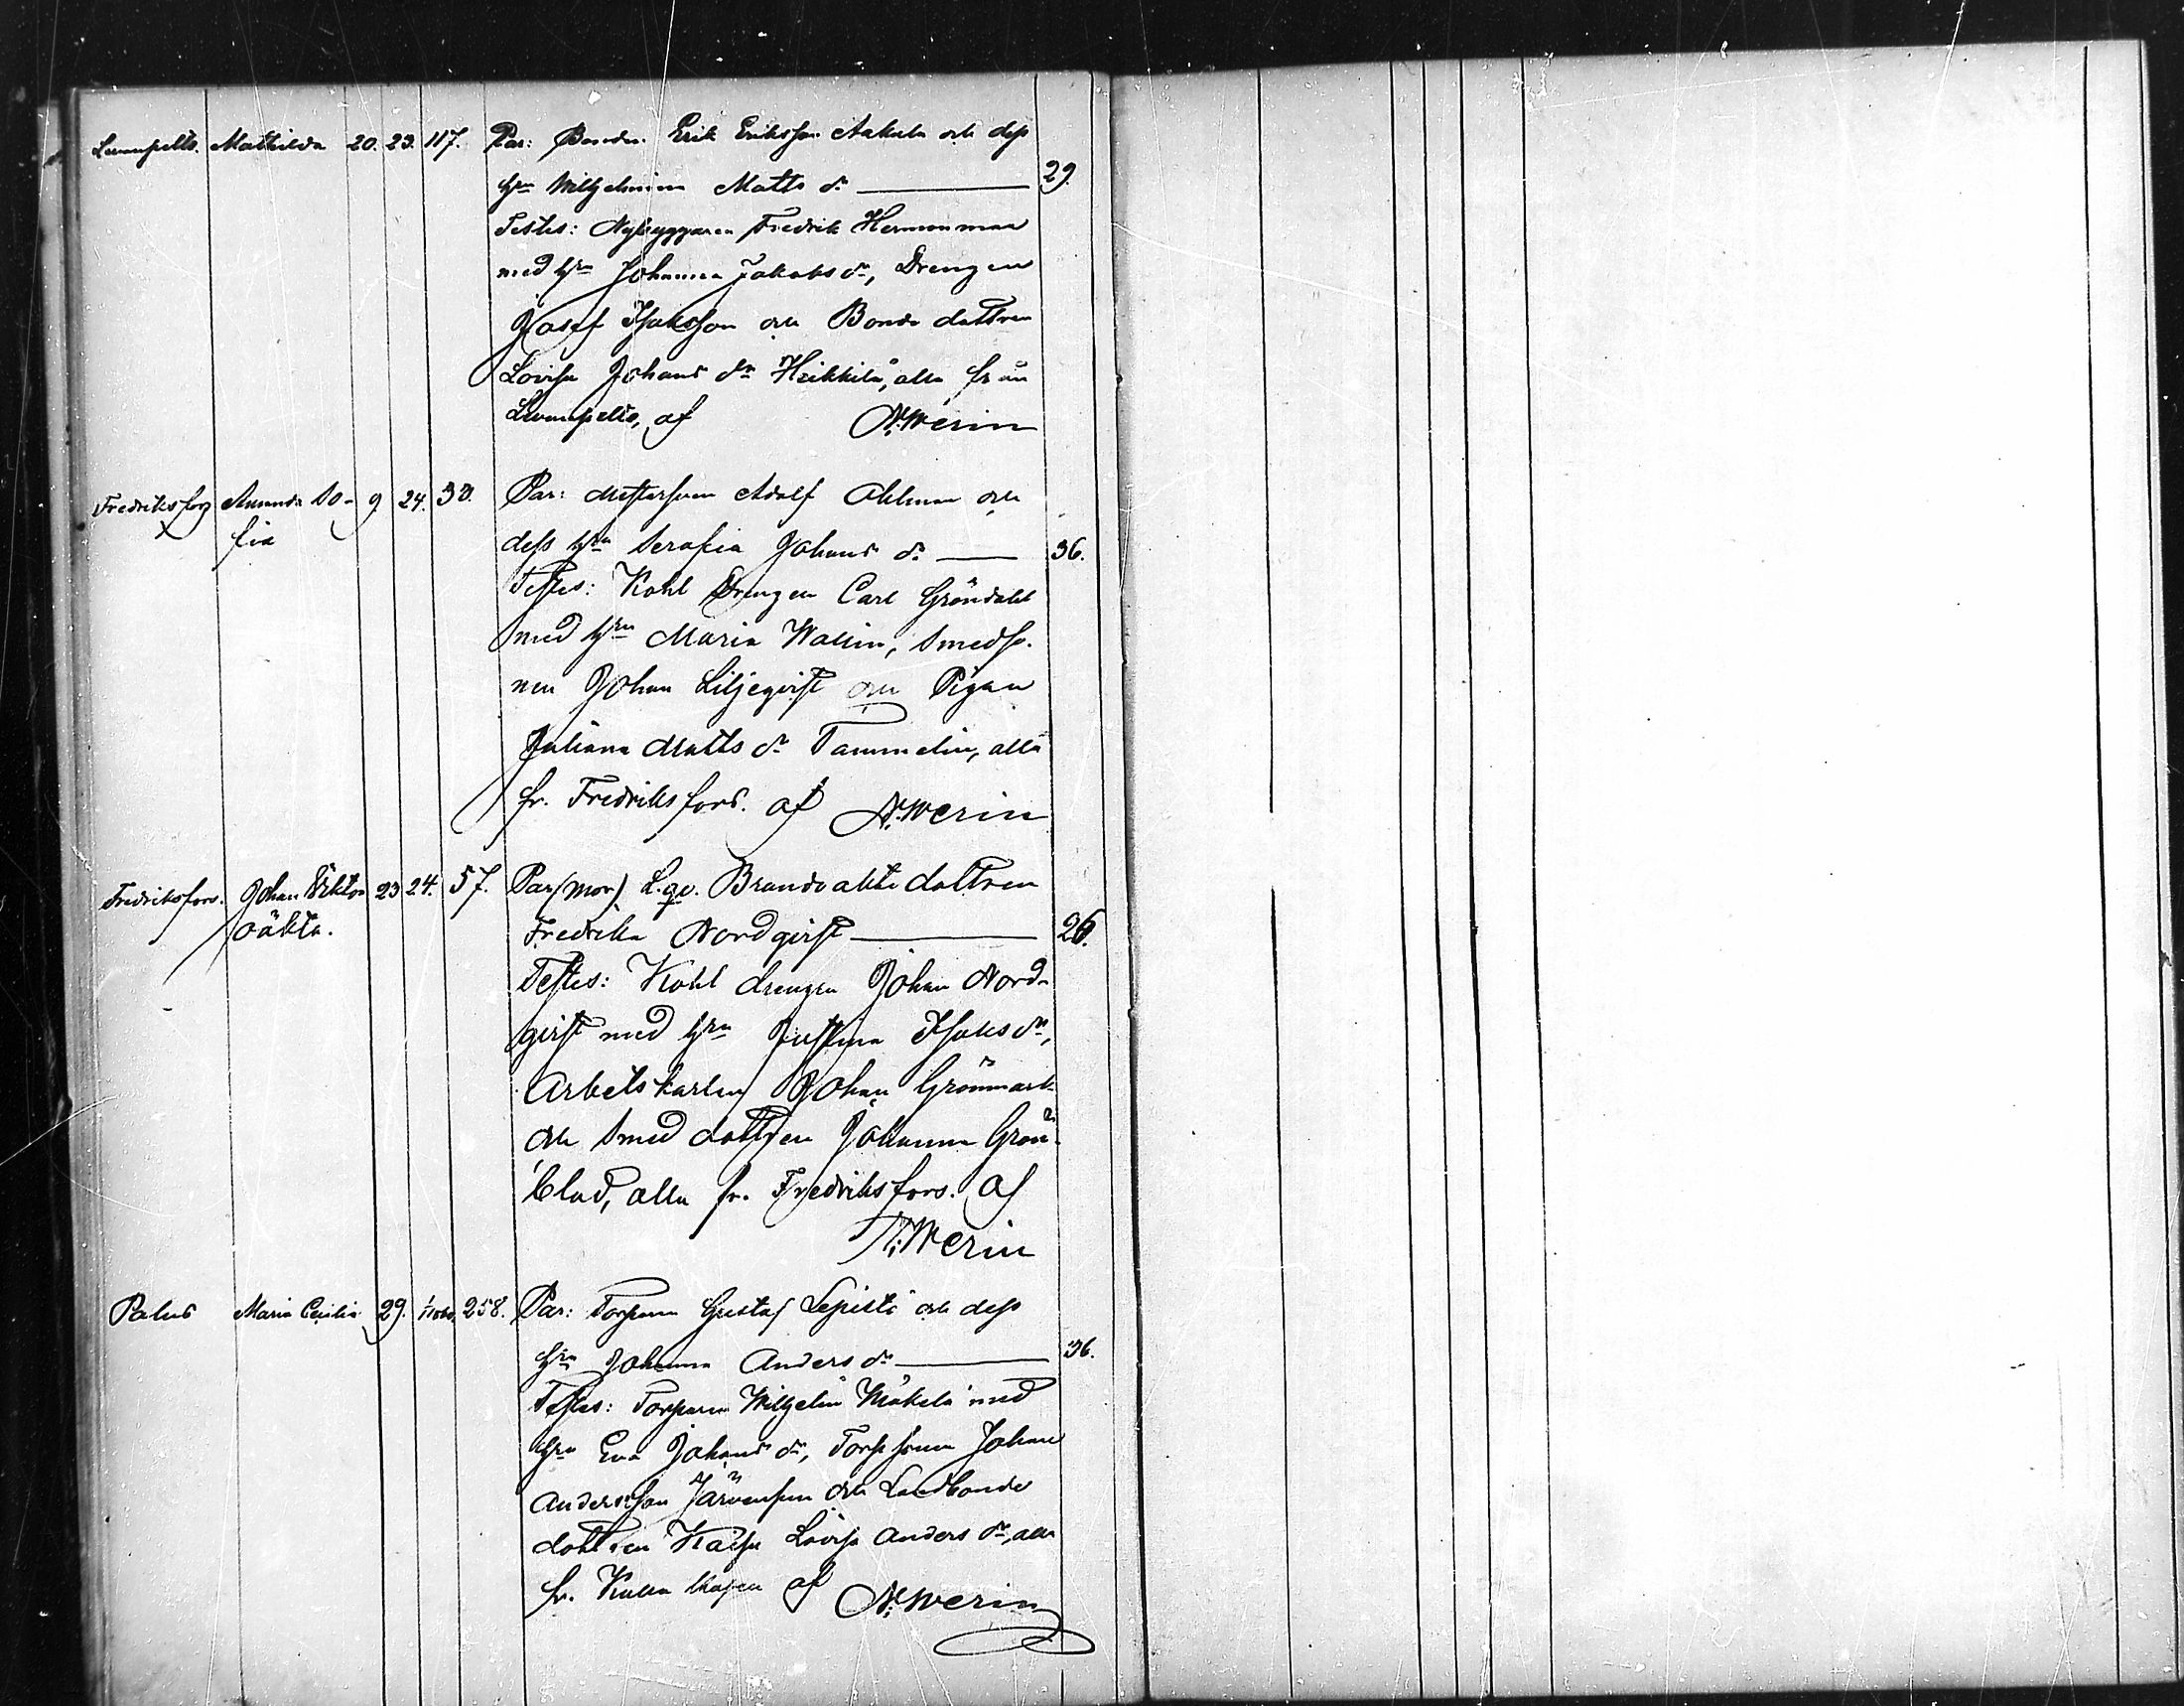 Mathilda 20. 23. 117. Par: Bonden Erik Eriksson Aakula och dess
hru Wilhelmina Matts dr 29.
Testes: Nybyggaren Fredrik Hermonmaa
med hru Johanna Jakobs dr, Drengen
Josef Isaksson och Bonde dottren
Lovisa Johans dr Heikkilä, alla från
Lumpelto, af N. Werin
Fredriksfors Amanda So- 9 24. 33. Par: Adolf Ahlman och
fia dess hru Serafia Johans dr 36.
Testes: Kohl Drengen Carl Gröndahl
med hru Maria Wallin, Smedso-
nen Johan Liljeqvist och Pigan
Juliana Matts dr Tammelin, alla
fr. Fredriksfors. af N. Werin
Fredriksfors. Johan Viktor 23 24. 57. Par (mor) L.qv. Brandvakts dottren
oäkta. Fredrika Nordqvist 26.
Testes: Kohl drengen Johan Nord-
qvist med hru Justina Isaks dr,
Arbetskarlen Johan Grönmark
och Smed dottren Johanna Grön-
blad, alla fr. Fredriksfors. af
N. Werin
Palus Maria Cecilia 29. 258. Par: Torparen Gustaf Lepistö och dess
hru Johanna Anders dr 36.
Testes: Torparen Wilhelm Mäkelä med
hru Eva Johans dr, Torpsonen Johan
Andersson Järvensuu och Landbonde
dottren Kaisa Lovisa Anders dr, alla
fr. af N. Werin